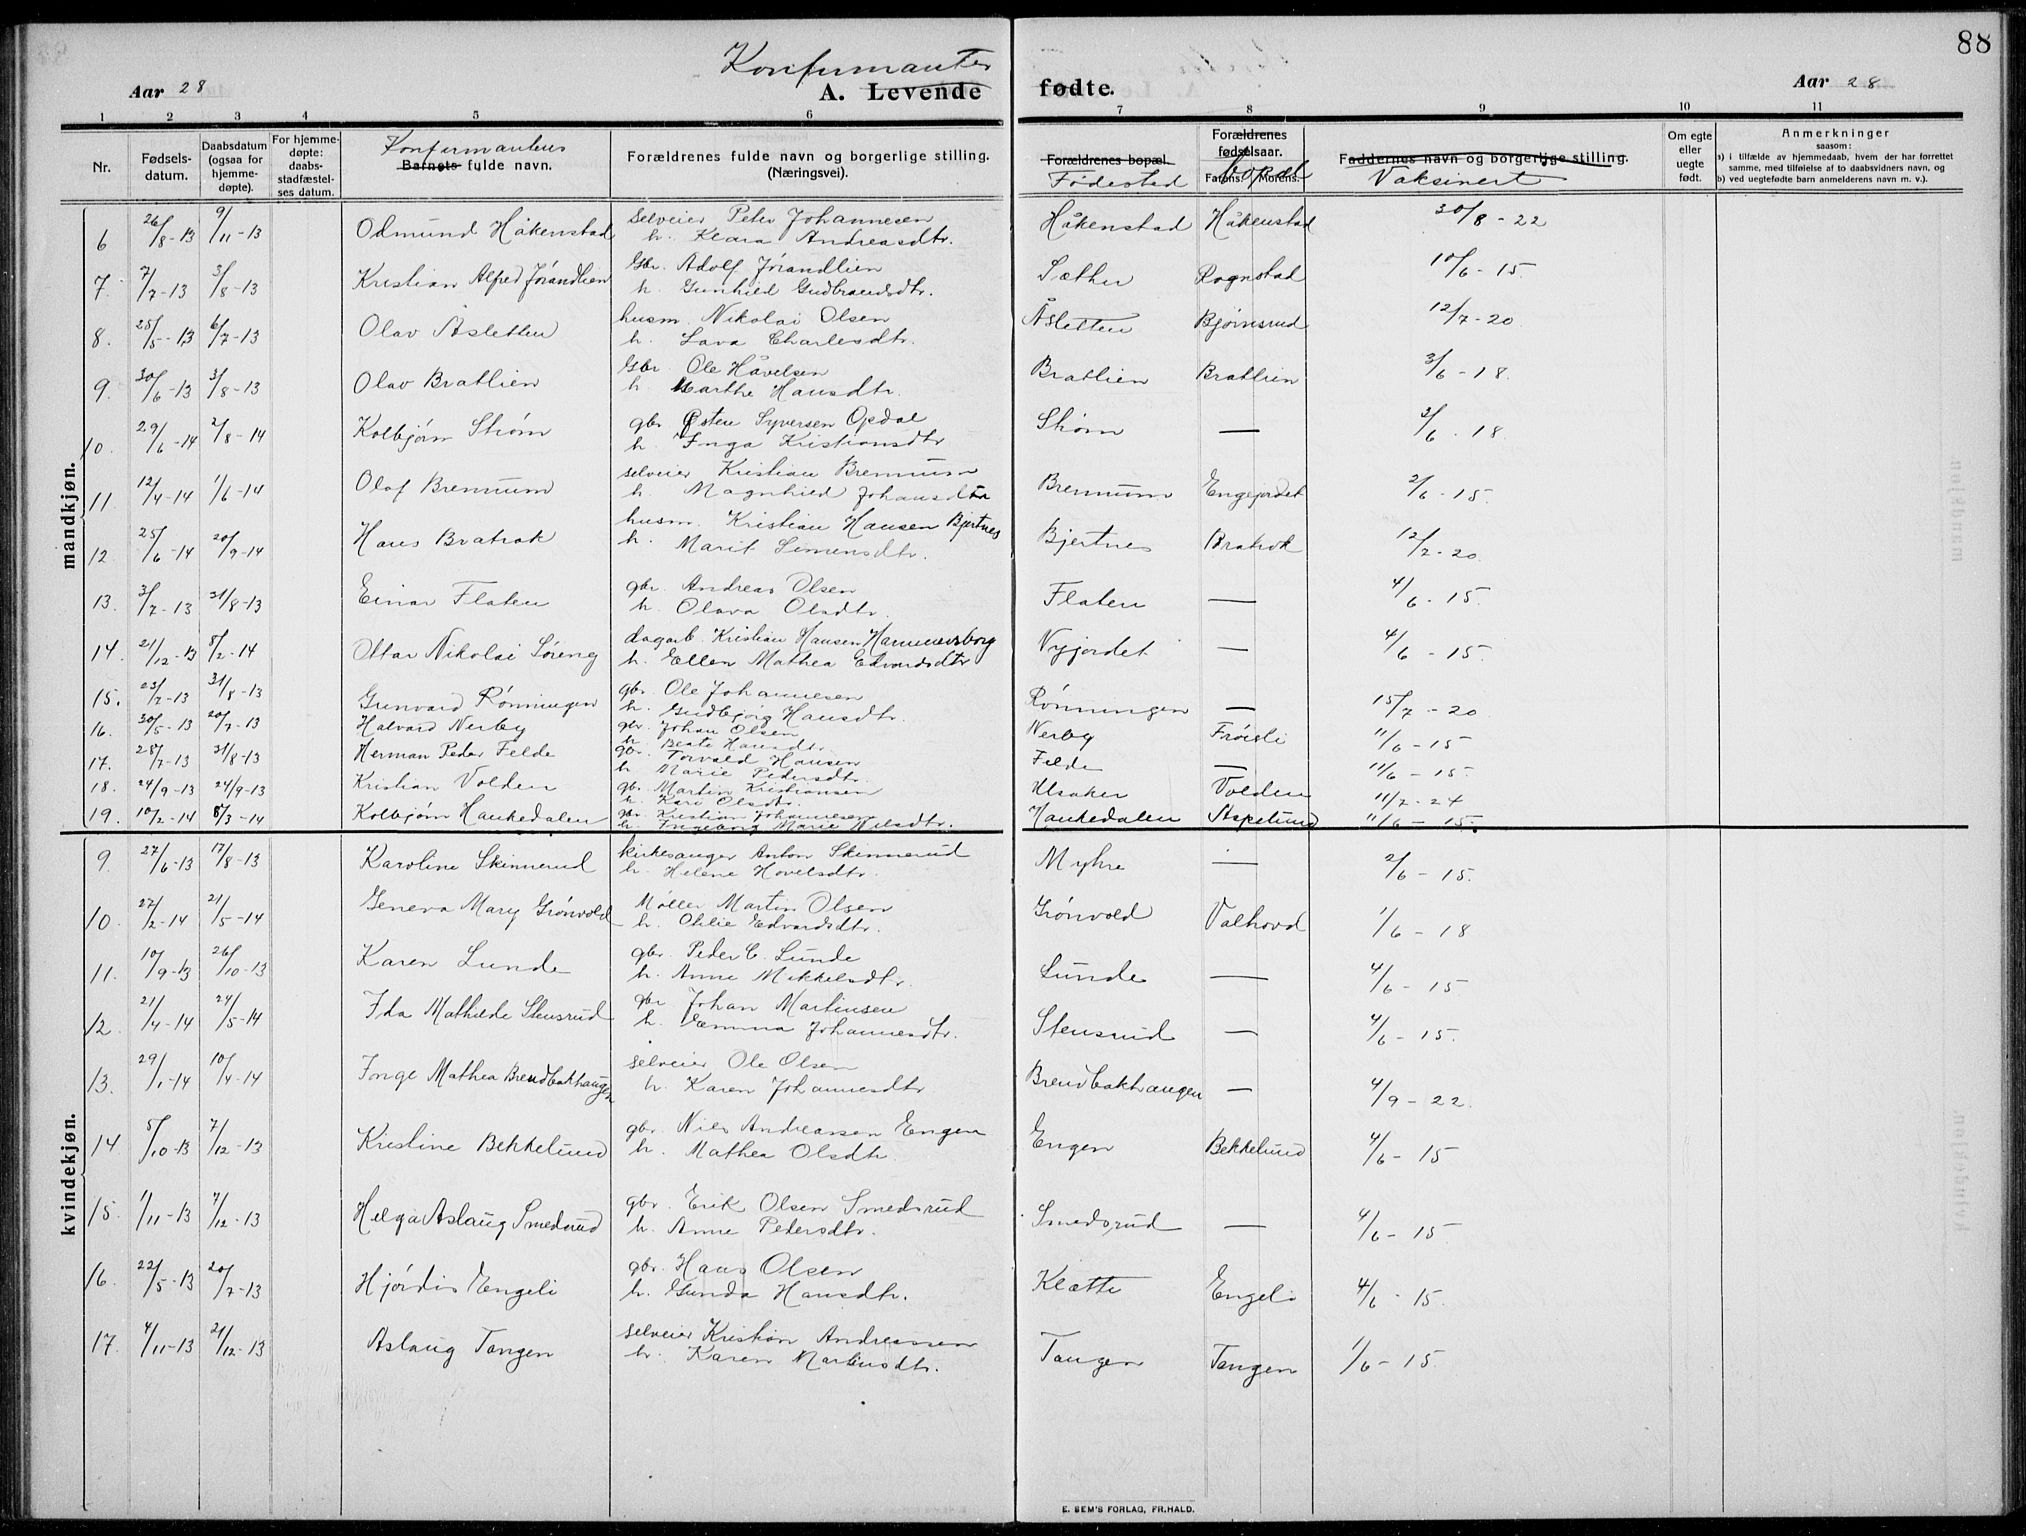 88
Konfirmanter
Aar 28
A. Levende fødte.
Aar 28
1 2 3 4 5 6 7 8 9 10 11
Nr.
Fødsels-
datum.
Daabsdatum
(ogsaa for
hjemme-
døpte).
For hjemme-
døpte:
daabs-
stadfæstel-
ses datum.
Konfirmantens
Barnets fulde navn.
Forældrenes fulde navn og borgerlige stilling.
(Næringsvei).
Forældrenes bopæl.
Fødested
Forældrenes
fødselsaar.
Farens. Morens.
Bopæl
Faddernes navn og borgerlige stilling.
Vaksinert
Om egte
eller
uegte
født.
Anmerkninger
saasom:
a) i tilfælde av hjemmedaab, hvem der har forrettet
samme, med tilføielse af to daabsvidners navn, og
b) ved uegtefødte barn anmelderens navn m. v.).
mandkjøn.
6 26/8-13 9/11-13 Odmund Håkenstad selveier Peter Johannesen Håkenstad Håkenstad 30/8-22
h. Klara Andreasdtr.
7. 7/7-13 3/8-13 Kristian Alfred Jørandlien Gbr. Adolf Jørandlien Sæther Rognstad 10/6-15
h. Gunhild Gudbrandsdtr.
8. 25/5-13 6/7-13 Olav Åsletten husm. Nikolai Olsen Åsletten Bjørnsrud 12/7-20
h. Lava Charlesdtr.
9. 30/6-13 3/8-13 Olav Bratlien Gbr Ole Håvelsen Bratlien Bratlien 3/6-18.
h. Marthe Hansdtr.
10. 29/6-14 2/8-14 Kolbjørn Strøm gbr. Østen Syversen Opdal Strøm — 3/6-18.
h. Inga Kristiansdtr
11. 12/4-14 1/6-14 Olaf Bremmum selveier Kristian Bremmum Bremmum Engejordet 2/6-15.
h. Magnhild Johansdtr
12. 25/6-14 20/9-14 Hans Bratrok husm. Kristian Hansen Bjertnes Bjertnes Bratrok 12/2-20.
h. Marit Simensdtr.
13. 31/7-13 31/8-13 Einar Flaten gbr. Andreas Olsen Flaten — 4/6-15.
h. Olava Olsdtr.
14. 21/12-13 8/2-14 Ottar Nikolai Søreng dagarb. Kristian Hansen Hammersborg Nyjordet — 4/6-15.
h. Ellen Mathea Edvardsdtr
15. 23/7-13 31/8-13 Gunvard Rønningen gbr. Ole Johannesen Rønningen — 15/7-20
h. Gudbjørg Hansdtr.
16. 30/5-13 20/7-13 Halvard Nerby gbr. Johan Olsen Nerby Frøisli 11/6-15
h. Beate Hansdtr.
17. 28/7-13 31/8-13 Herman Peder Felde gbr. Torvald Hansen Felde — 11/6-15.
h. Marie Pedersdtr.
18. 24/9-13 24/9-13 Kristian Volden gbr. Martin Kristiansen Ulsaker Volden 11/2-24
h. Kari Olsdtr.
19. 10/2-14 8/3-14 Kolbjørn Haukedalen gbr. Kristian Johannesen Haukedalen Aspelund 11/6-15.
h. Ingeborg Marie Nilsdtr.
kvindekjøn.
9. 27/6-13 17/8-13 Karoline Skinnerud kirkesanger Anton Skinnerud Myhre — 2/6-15.
h. Helene Hovelsdtr.
10. 27/2-14 21/5-14 Geneva Mary Grønvold Møller Martin Olsen Grønvold Valhovd 1/6-18
h. Othlie Edvardsdtr.
11. 10/9-13 26/10-13 Karen Lunde gbr. Peder C. Lunde Lunde — 4/6-15.
h. Anne Mikkelsdtr.
12. 21/4-14 24/5-14 Ida Mathilde Stensrud gbr. Johan Martinsen Stensrud — 4/6-15.
h. Emma Johannesdtr.
13. 29/1-14 10/4-14 Inge Mathea Brendbakhaugen selveier Ole Olsen Brendbakhaugen — 4/9-22.
h. Karen Johannesdtr
14 5/10-13 7/12-13 Kristine Bekkelund gbr. Nils Andreassen Engen Engen Bekkelund 4/6-15
h. Mathea Olsdtr.
15. 1/11-13 7/12-13 Helga Aslaug Smedsrud gbr. Erik Olsen Smedsrud Smedsrud — 4/6-15.
h. Anne Pedersdtr.
16. 22/5-13 20/7-13 Hjørdis Engeli gbr. Hans Olsen Klætte Engeli 4/6-15.
h. Gunda Hansdtr.
17. 4/11-13 21/12-13 Aslaug Tangen selveier Kristian Andreassen Tangen Tangen 1/6-15.
h. Karen Martinsdtr.
E. SEM'S FORLAG, FR.HALD.